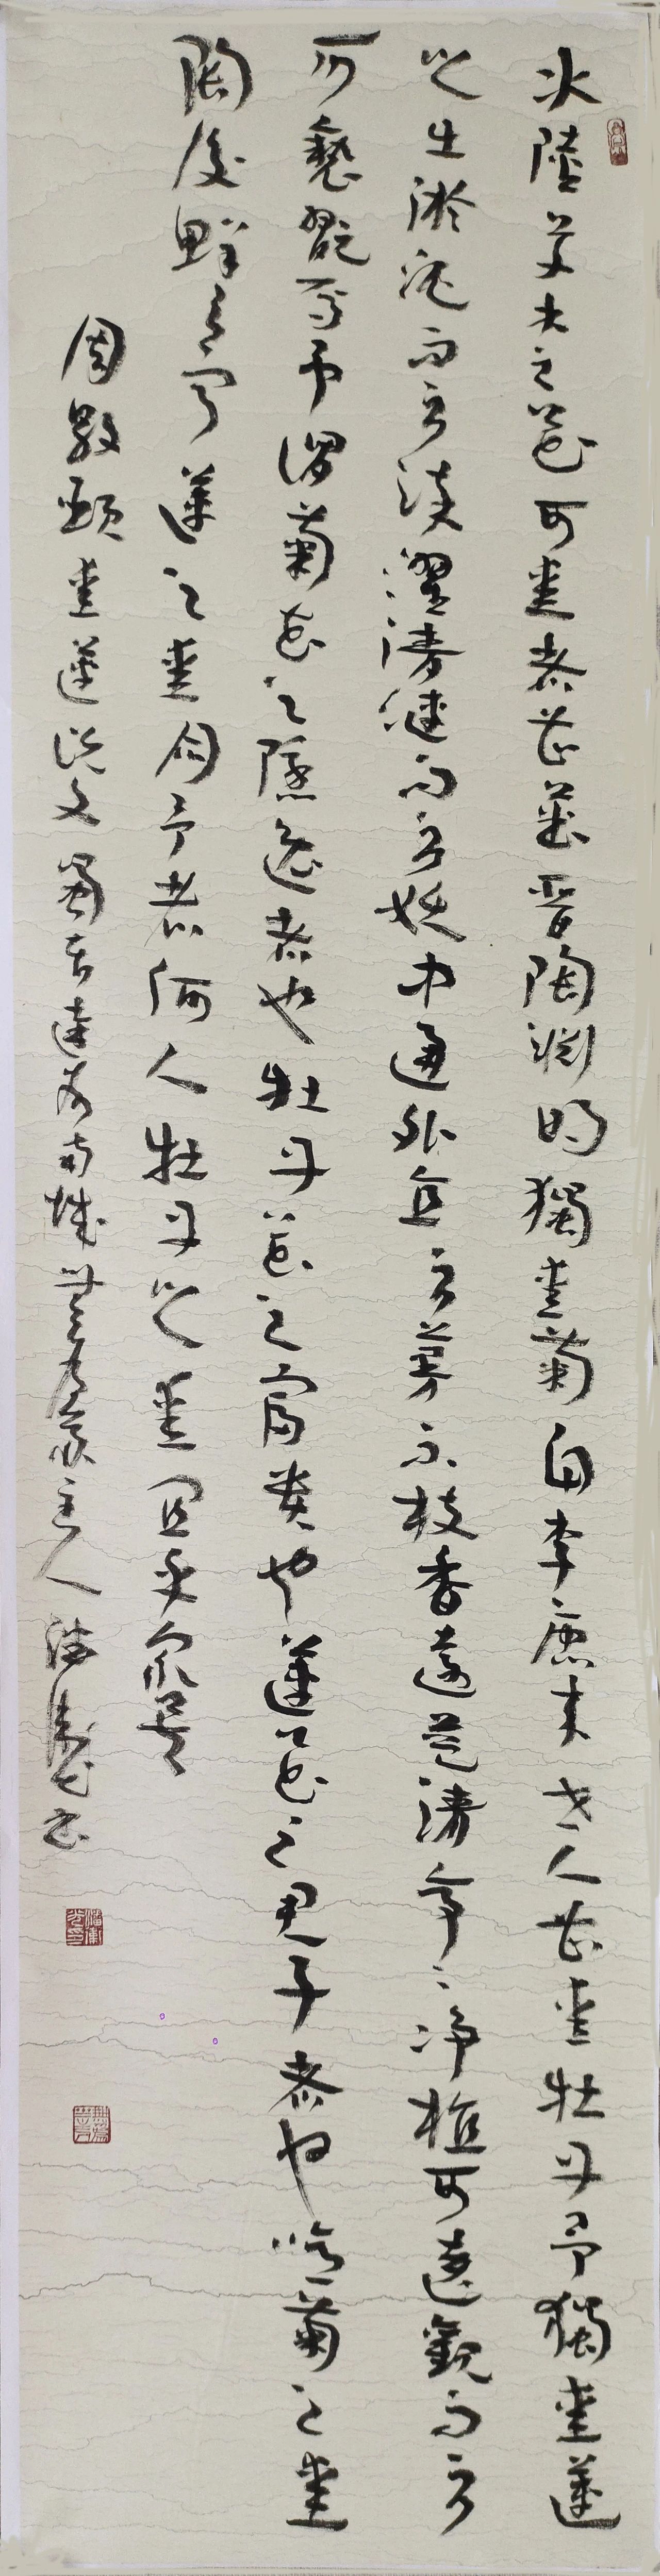 水陸草木之花可愛者甚蕃晉陶淵明獨愛菊自李唐來世人甚愛牡丹予獨愛蓮
之出淤泥而不染濯清漣而不妖中通外直不蔓不枝香遠益清亭〻淨植可遠觀而不
可褻翫焉予謂菊花之隱逸者也牡丹花之富貴也蓮花之君子者也噫菊之愛
陶後鮮有聞蓮之愛同予者何人牡丹之愛宜乎衆矣
周敦頤愛蓮説 南城 主人 書